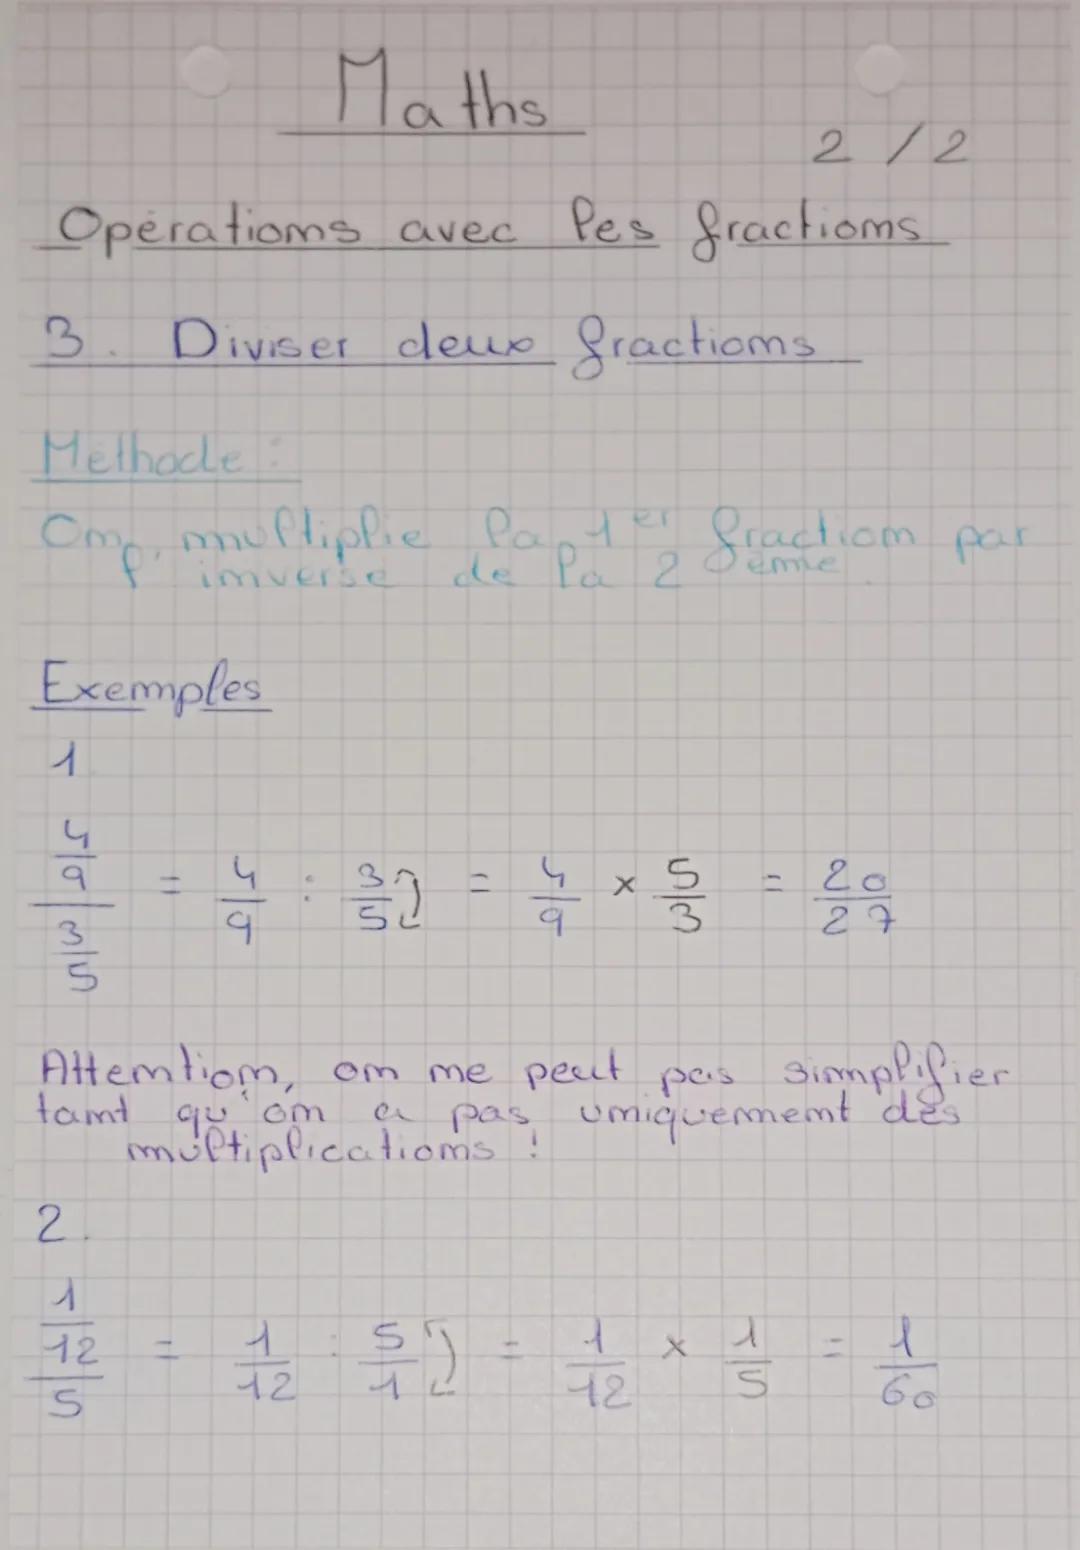 Maths
2/2
Opérations avec les fractions
3. Diviser deux fractions
Méthode :
On multiplie la 1er fraction par
l'inverse de la 2ème.
Exemples
1
4/9 / 3/5 = 4/9 : 3/5 = 4/9 × 5/3 = 20/27
Attention, on ne peut pas simplifier
tant qu'on a pas uniquement des
multiplications !
2.
1/12 / 5 = 1/12 : 5/1 = 1/12 × 1/5 = 1/60